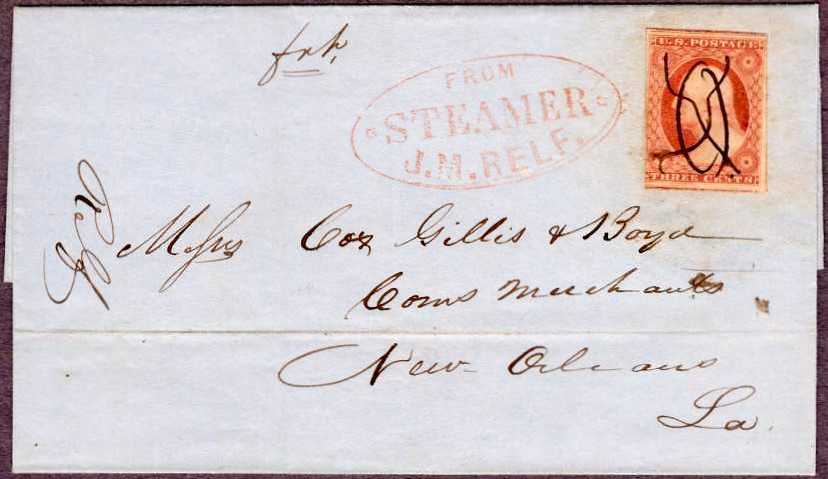 FROM
STEAMER
J.M. RELF.
U.S. POSTAGE
THREE CENTS
Messrs Cox Gillis & Boyd
Coms Merchants
New Orleans
La.